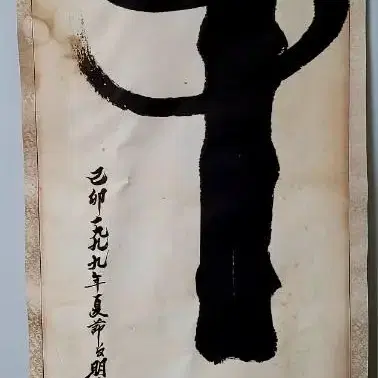 己卯一九九九年夏節明